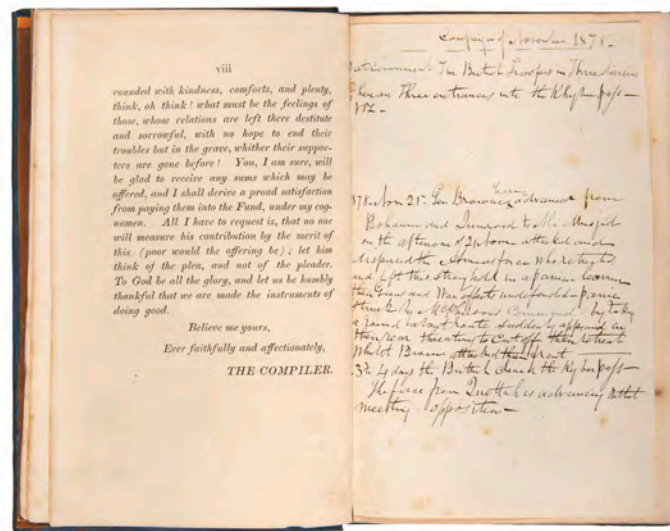 viii
rounded with kindness, comforts, and plenty,
think, oh think! what must be the feelings of
those, whose relations are left there destitute
and sorrowful, with no hope to end their
troubles but in the grave, whither their suppor-
ters are gone before! You, I am sure, will
be glad to receive any sums which may be
offered, and I shall derive a proud satisfaction
from paying them into the Fund, under my cog-
nomen. All I have to request is, that no one
will measure his contribution by the merit of
this (poor would the offering be); let him
think of the plea, and not of the pleader.
To God be all the glory, and let us be humbly
thankful that we are made the instruments of
doing good.
Believe me yours,
Ever faithfully and affectionately,
THE COMPILER.
Campaign of November 1878.
The British Troops in Three divisions
Three entrances into the Khyber pass—
viz—
Nov 21st Gen Browne advanced from
and Jumrood to Ali Musjid
on the afternoon of 21 Novr attacked and
dispersed the force who retreated
and left this stronghold in a panic leaving
their Guns and undefended panic
struck by McPhersons Command by taking
a round about route suddenly appeared in
their rear threating to cut off their retreat
Whilst Brown attacked their front
4 days the British cleared the Kyber pass—
The force from Quettah is advancing without
meeting opposition—